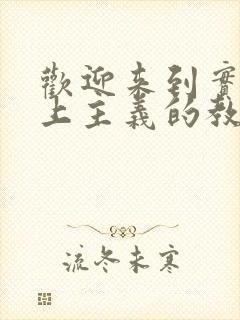 歡迎來到實
上主義的教
流冬未寒